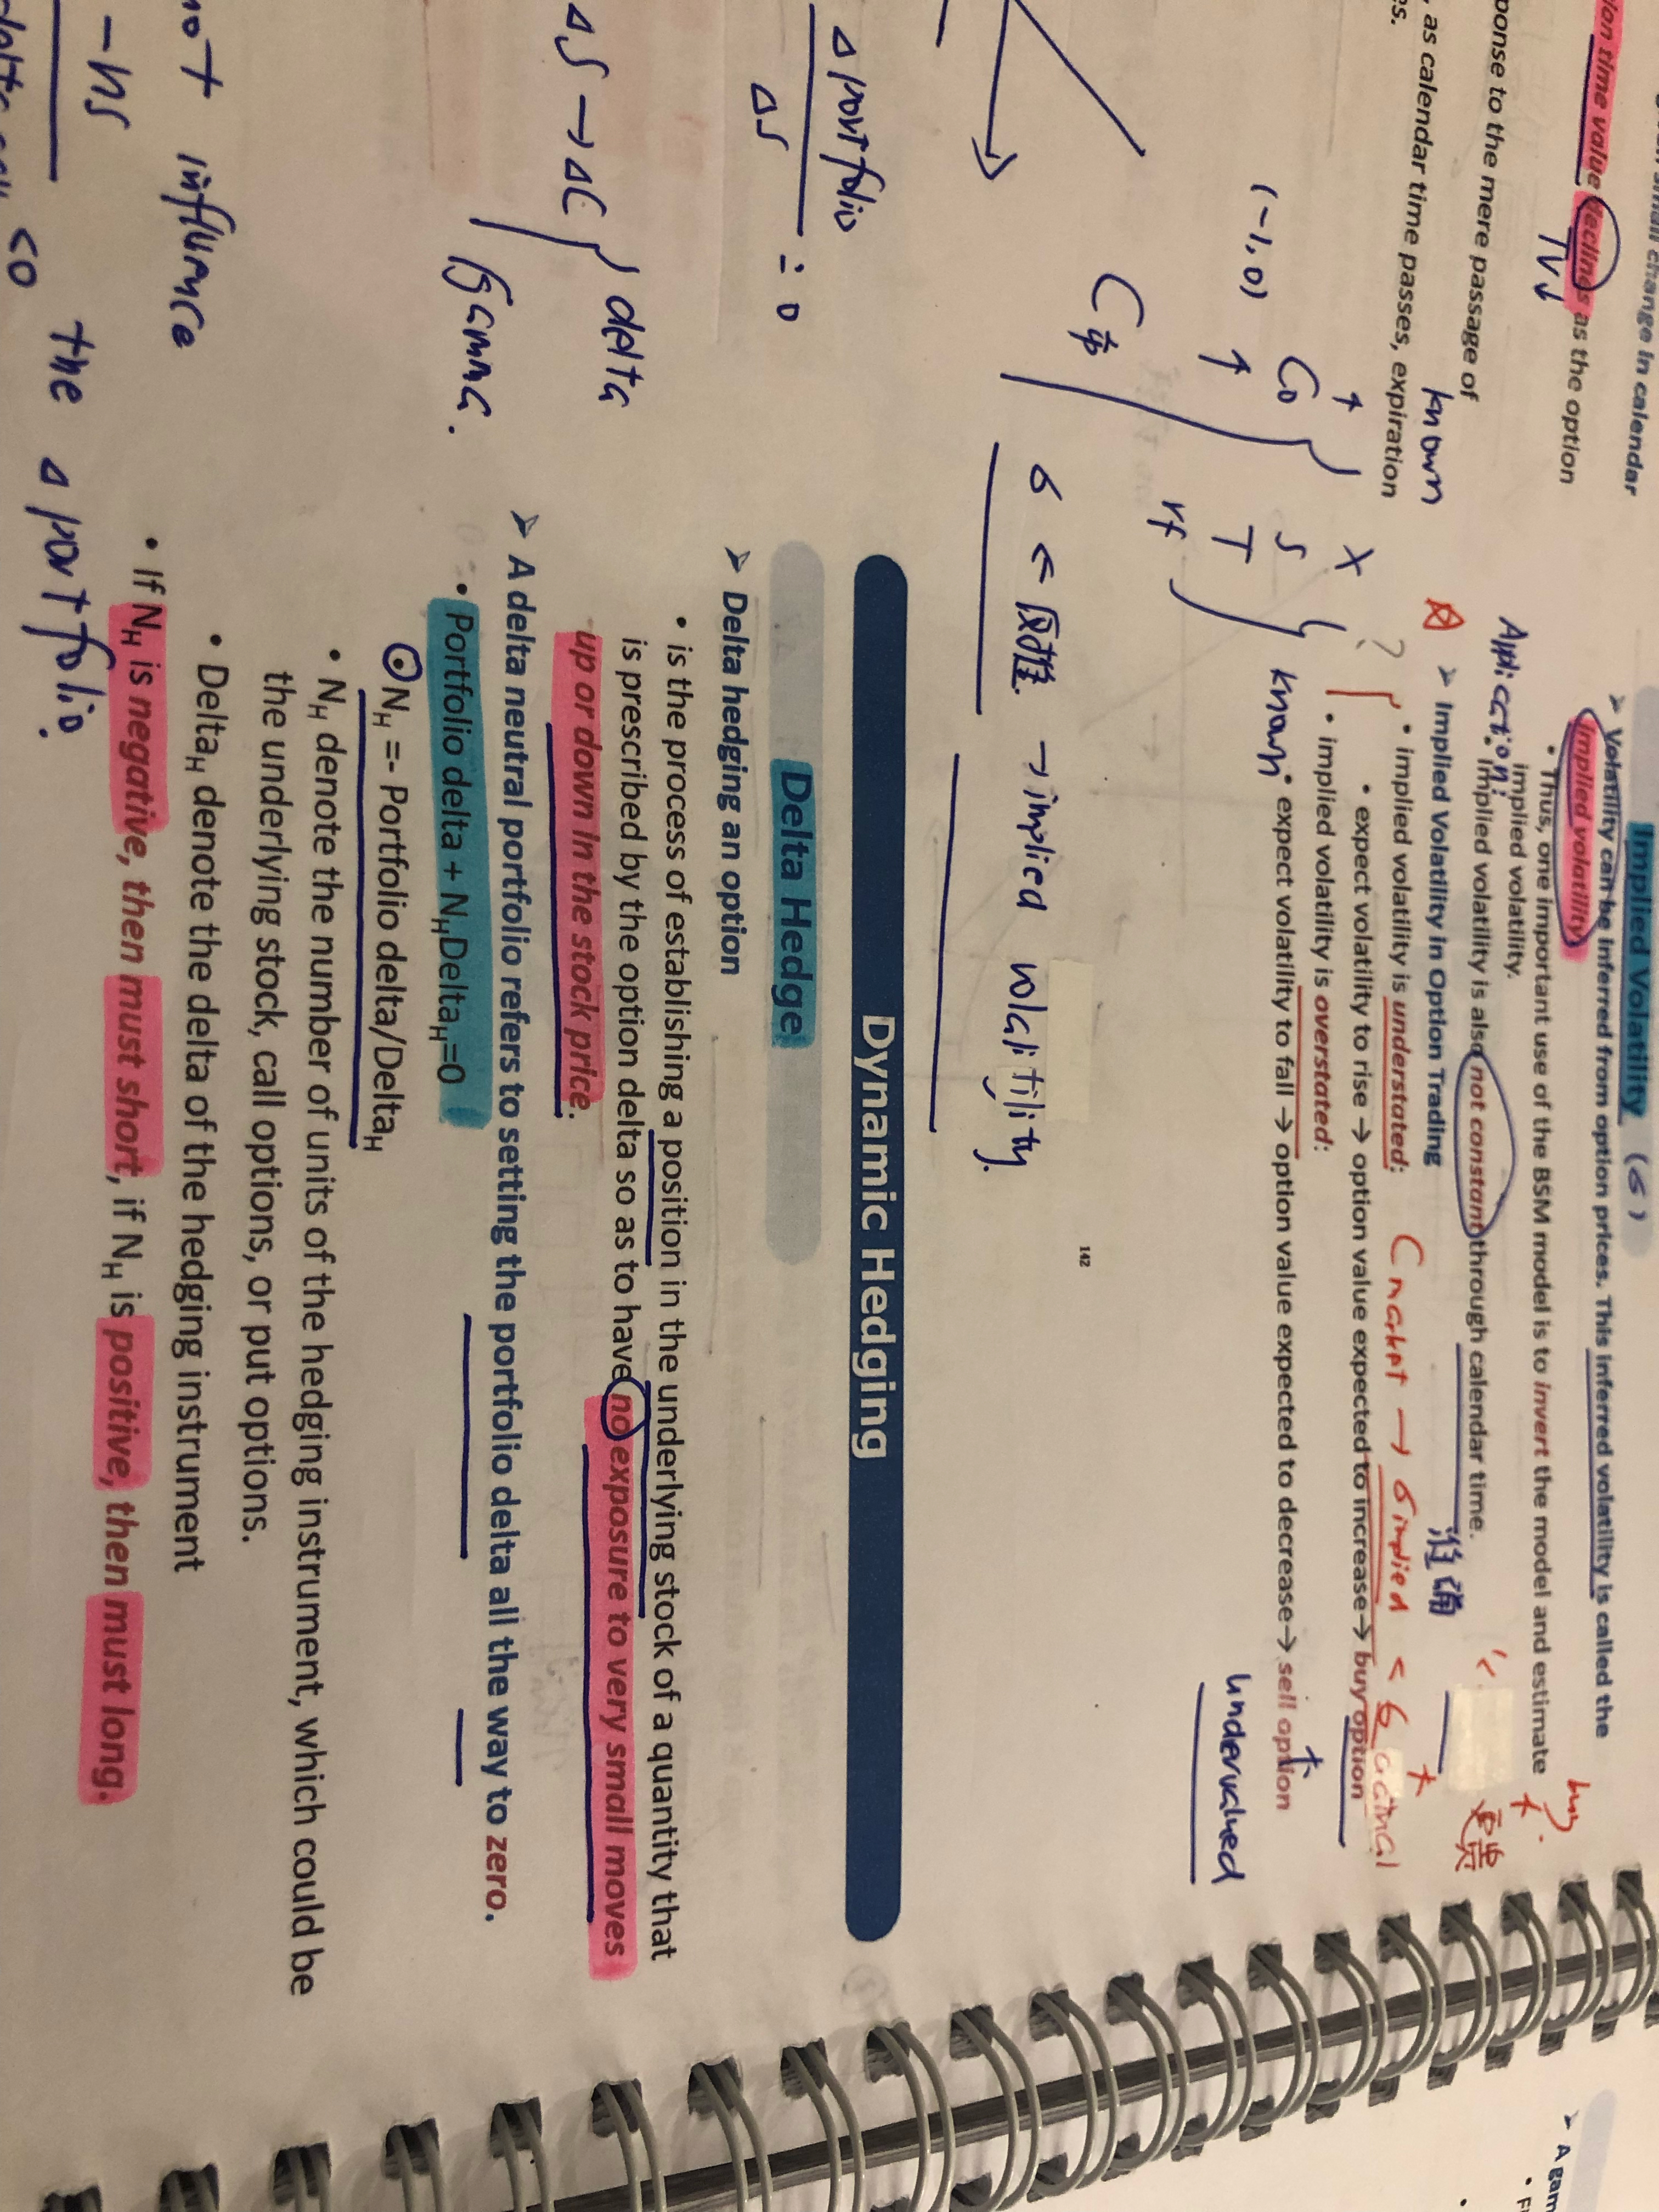 small change in calendar
time value declines as the option
TV↓
ponse to the mere passage of
known
, as calendar time passes, expiration
es.
Implied Volatility (σ)
➢ Volatility can be inferred from option prices. This inferred volatility is called the
implied volatility
• Thus, one important use of the BSM model is to invert the model and estimate
implied volatility.
Application:
• implied volatility is also not constant through calendar time.
➢ Implied Volatility in Option Trading
• implied volatility is understated:
• expect volatility to rise → option value expected to increase→ buy option
• implied volatility is overstated:
• expect volatility to fall → option value expected to decrease→ sell option
buy
更贵
undervalued
X
S
T
rf
known
C0
(-1,0)
σ < 反推 → implied volatility.
142
Dynamic Hedging
Delta Hedge
➢ Delta hedging an option
• is the process of establishing a position in the underlying stock of a quantity that
is prescribed by the option delta so as to have no exposure to very small moves
up or down in the stock price.
➢ A delta neutral portfolio refers to setting the portfolio delta all the way to zero.
• Portfolio delta + NHDeltaH=0
NH =- Portfolio delta/DeltaH
• NH denote the number of units of the hedging instrument, which could be
the underlying stock, call options, or put options.
• DeltaH denote the delta of the hedging instrument
• If NH is negative, then must short, if NH is positive, then must long.
Δ portfolio
ΔS
= 0
ΔS → ΔC } delta
gamma.
not influence
the Δ portfolio.
- hs
<0
➢ A gam